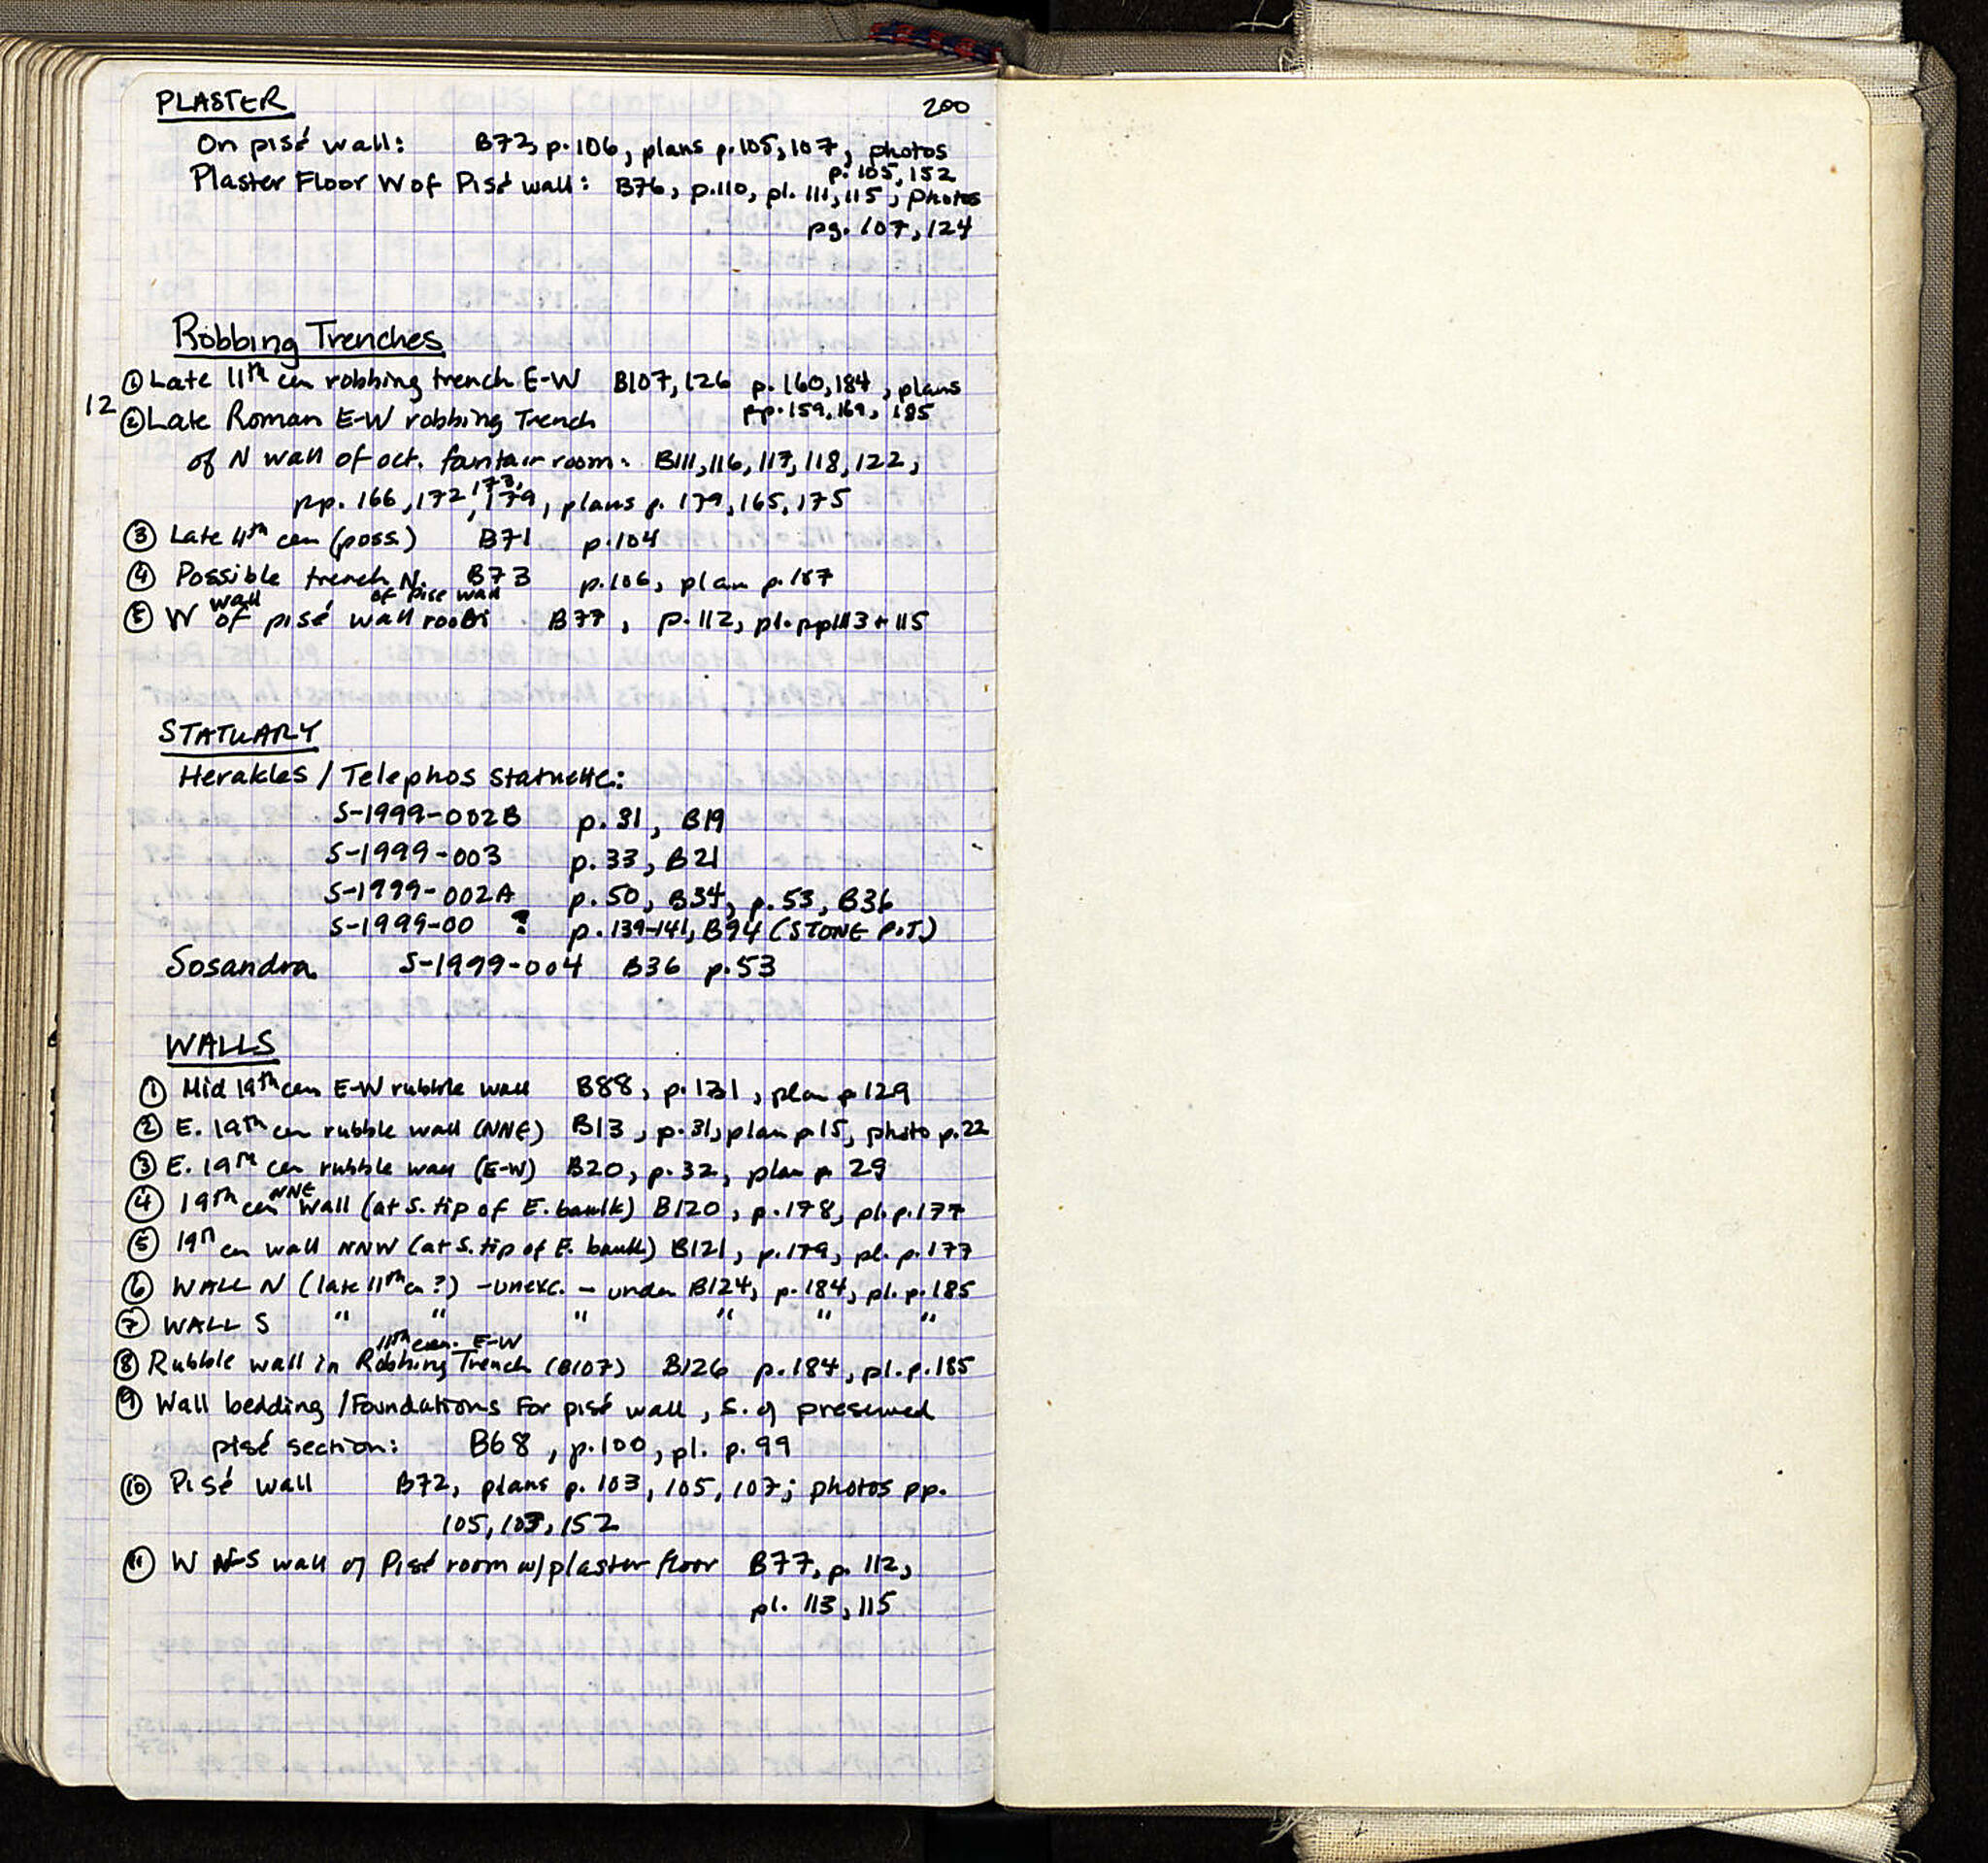 200
PLASTER
On pisé wall: B72, p.106, plans p.105,107, photos
p.105,152
Plaster Floor W of Pisé wall: B76, p.110, pl. 111,115; Photos
pg. 107,124
Robbing Trenches
① Late 11th cen robbing trench E-W B107,126 p.160,184, plans
pp.159,169,185
12
② Late Roman E-W robbing Trench
of N wall of oct. fountain room: B111,116,117,118,122,
173,
pp. 166,172,179, plans p. 179,165,175
③ Late 11th cen (poss) B71 p.104
④ Possible trench N. B73 p.106, plan p.107
of pisé wall
wall
⑤ W of pisé wall room B77, p.112, pl. pp113+115
STATUARY
Herakles / Telephos Statuette:
S-1999-002B p.31, B19
S-1999-003 p.33, B21
S-1999-002A p.50, B34, p.53, B36
S-1999-00 ? p.139-141, B94 (STONE PIT)
Sosandra S-1999-004 B36 p.53
WALLS
① Mid 19th cen E-W rubble wall B88, p.131, plan p 129
② E. 19th cen rubble wall (NNE) B13, p.31, plan p 15, photo p.22
③ E. 19th cen rubble wall (E-W) B20, p.32, plan p 29
NNE
④ 19th cen wall (at S. tip of E. baulk) B120, p.178, pl. p.177
⑤ 19th cen wall NNW (at S. tip of E. baulk) B121, p.179, pl. p.177
⑥ WALL N (late 11th cen ?) -unexc. - under B124, p.184, pl. p.185
⑦ WALL S " " " " " "
11th cen. E-W
⑧ Rubble wall in Robbing Trench (B107) B126 p.184, pl. p.185
⑨ Wall bedding /Foundations For pisé wall, S. of preserved
pisé section: B68, p.100, pl. p.99
⑩ Pisé wall B72, plans p. 103, 105, 107; photos pp.
105,103,152
⑪ W N-S wall of Pisé room w/plaster floor B77, p. 112,
pl. 113,115